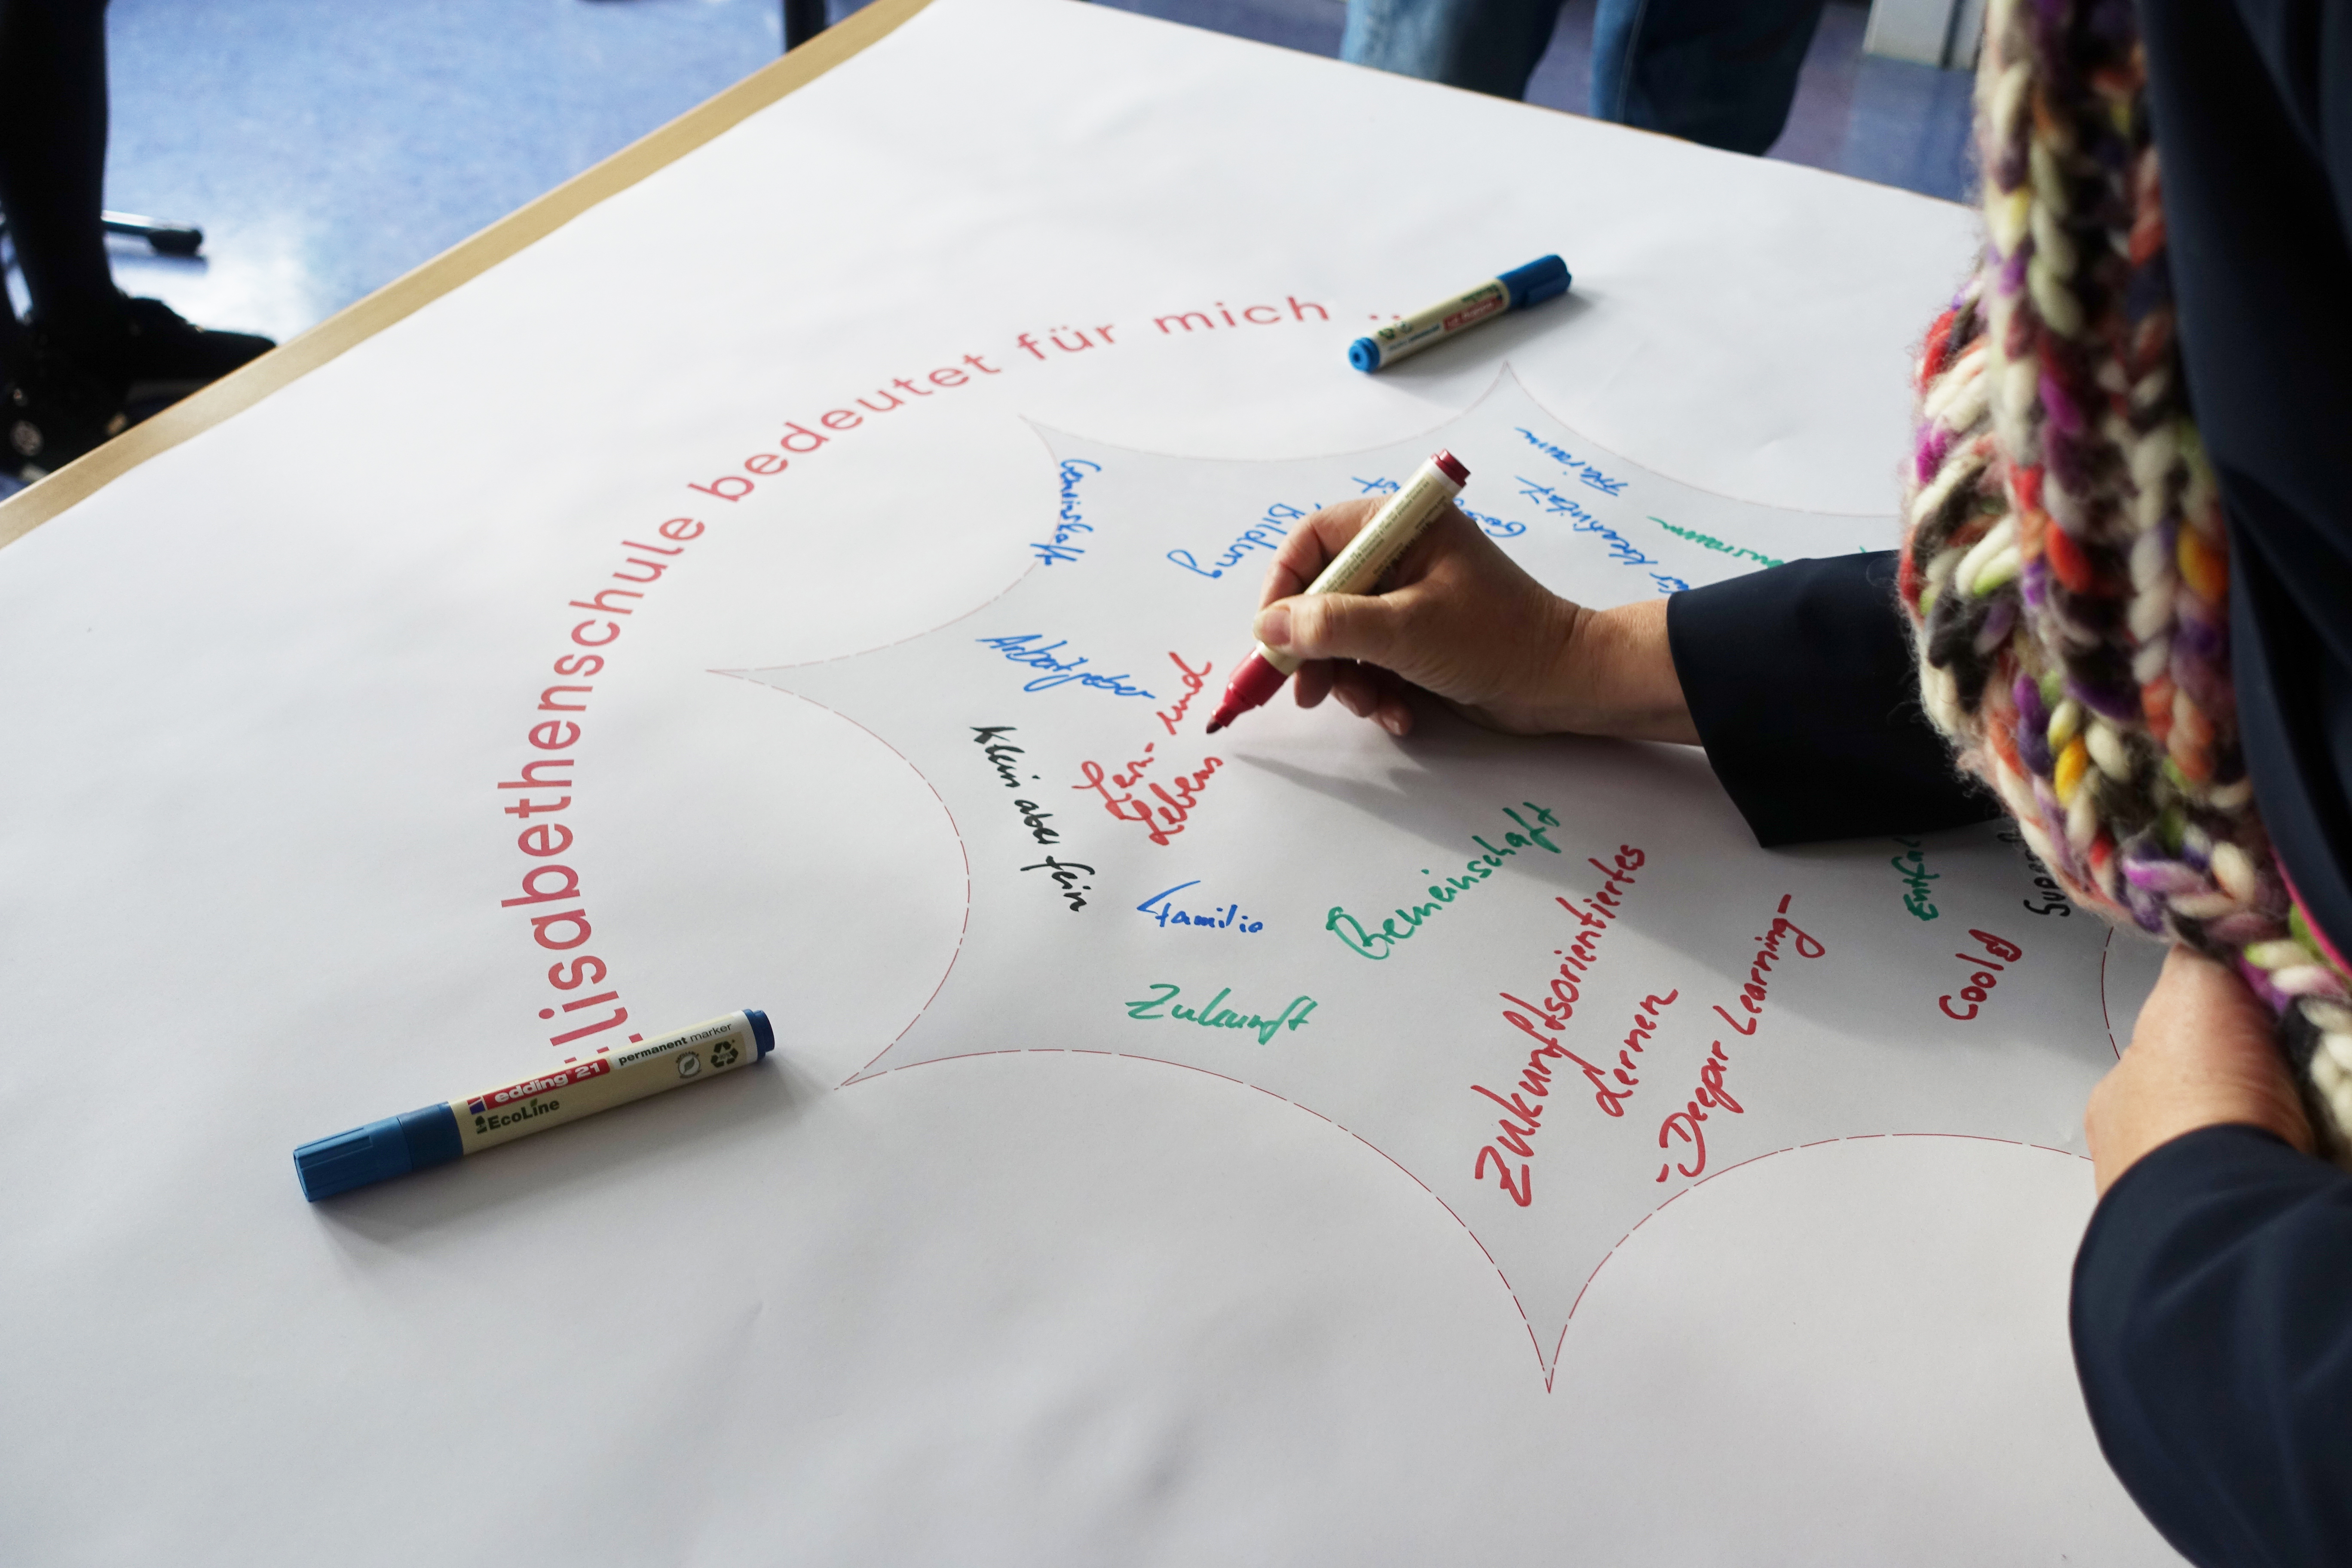 Elisabethenschule bedeutet für mich ..
Gemeinschaft
Bildung
Freiraum
für Kreativität
Arbeitgeber
Lern- und
Lebens
Klein aber fein
Familie
Gemeinschaft
Zukunft
Zukunftsorientiertes
Lernen
-Deeper Learning-
Cool
edding 21
permanent marker
EcoLine